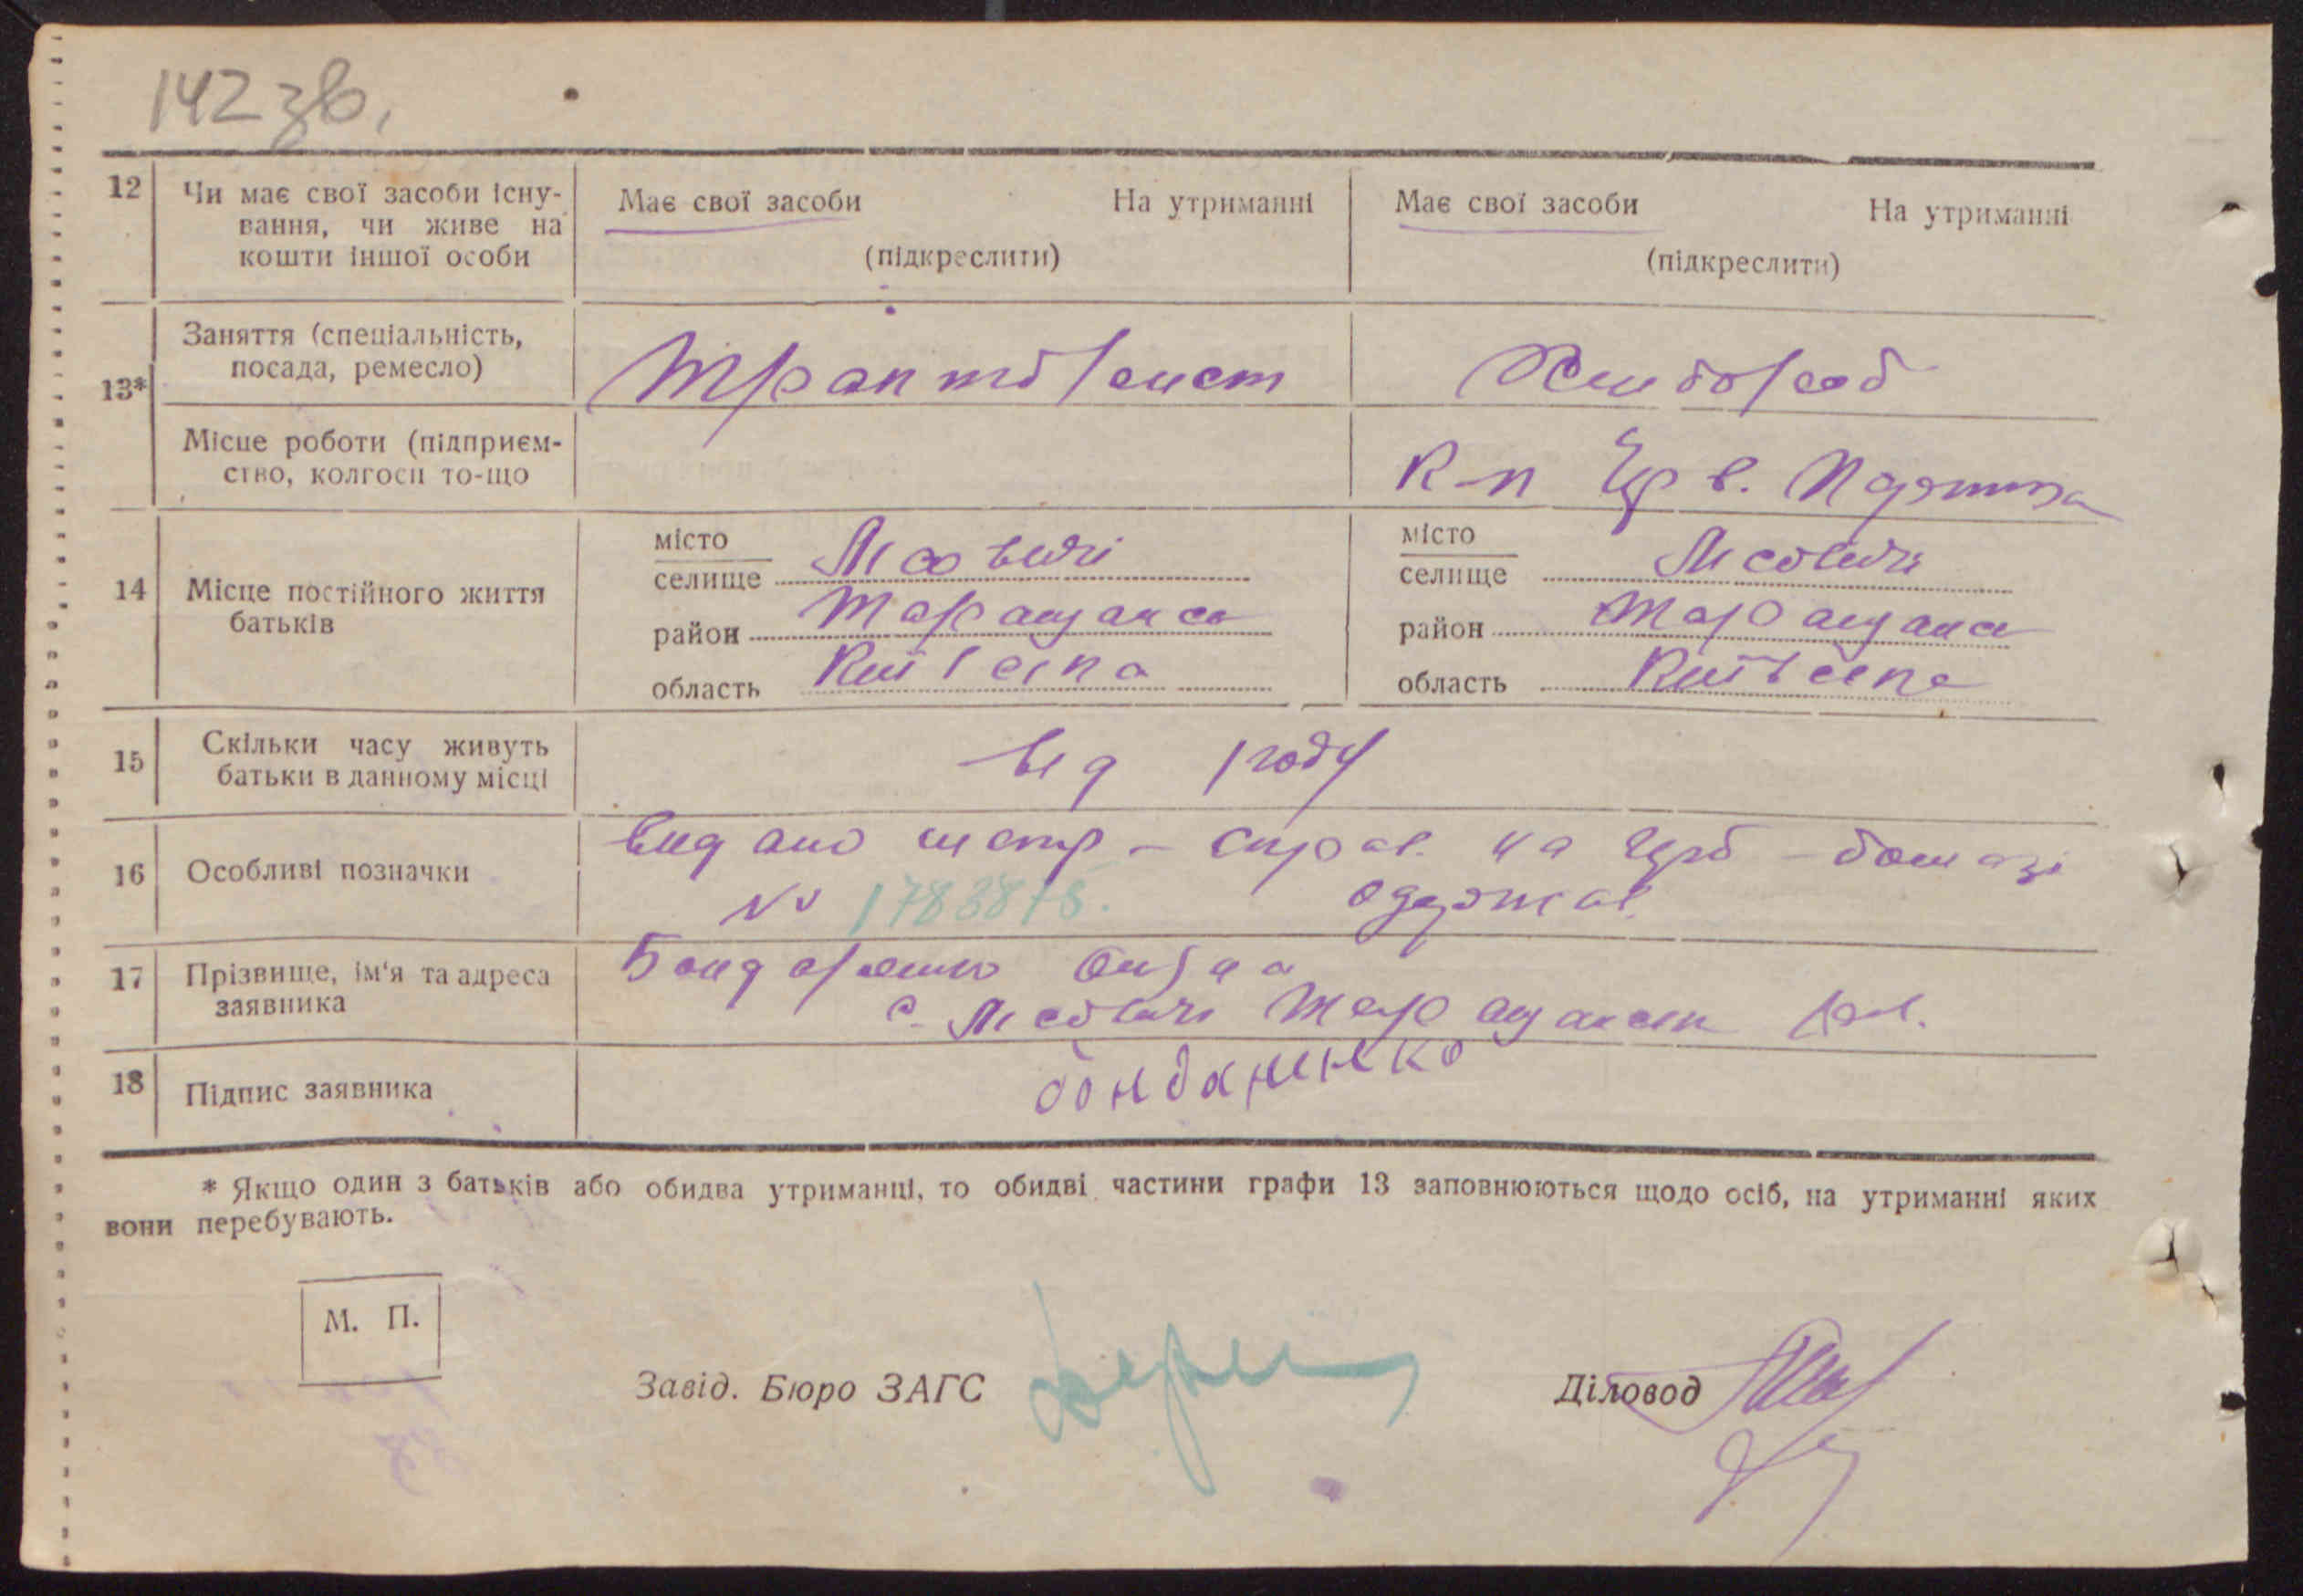 142 зв.
12 Чи має свої засоби існу-
вання, чи живе на
кошти іншої особи
Має свої засоби На утриманні
(підкреслити)
Має свої засоби На утриманні
(підкреслити)
13*
Заняття (спеціальність,
посада, ремесло)
Тракторист
Хлибороб
Місце роботи (підприєм-
ство, колгосп то-що
К-п Чрв.
14 Місце постійного життя
батьків
місто
селище Лісовичі
район Таращанс
область Київська
місто
селище Лісовичі
район Таращанс
область Київська
15 Скільки часу живуть
батьки в данному місці
від роду
16 Особливі позначки
Видано метр-справ. на бомазі
№ 1783875. одержав
17 Прізвище, ім'я та адреса
заявника
Бондаренко
с. Лісовичі Таращанськ
18 Підпис заявника
бондаренко
* Якщо один з батьків або обидва утриманці, то обидві частини графи 13 заповнюються щодо осіб, на утриманні яких
вони перебувають.
М. П.
Завід. Бюро ЗАГС
Діловод